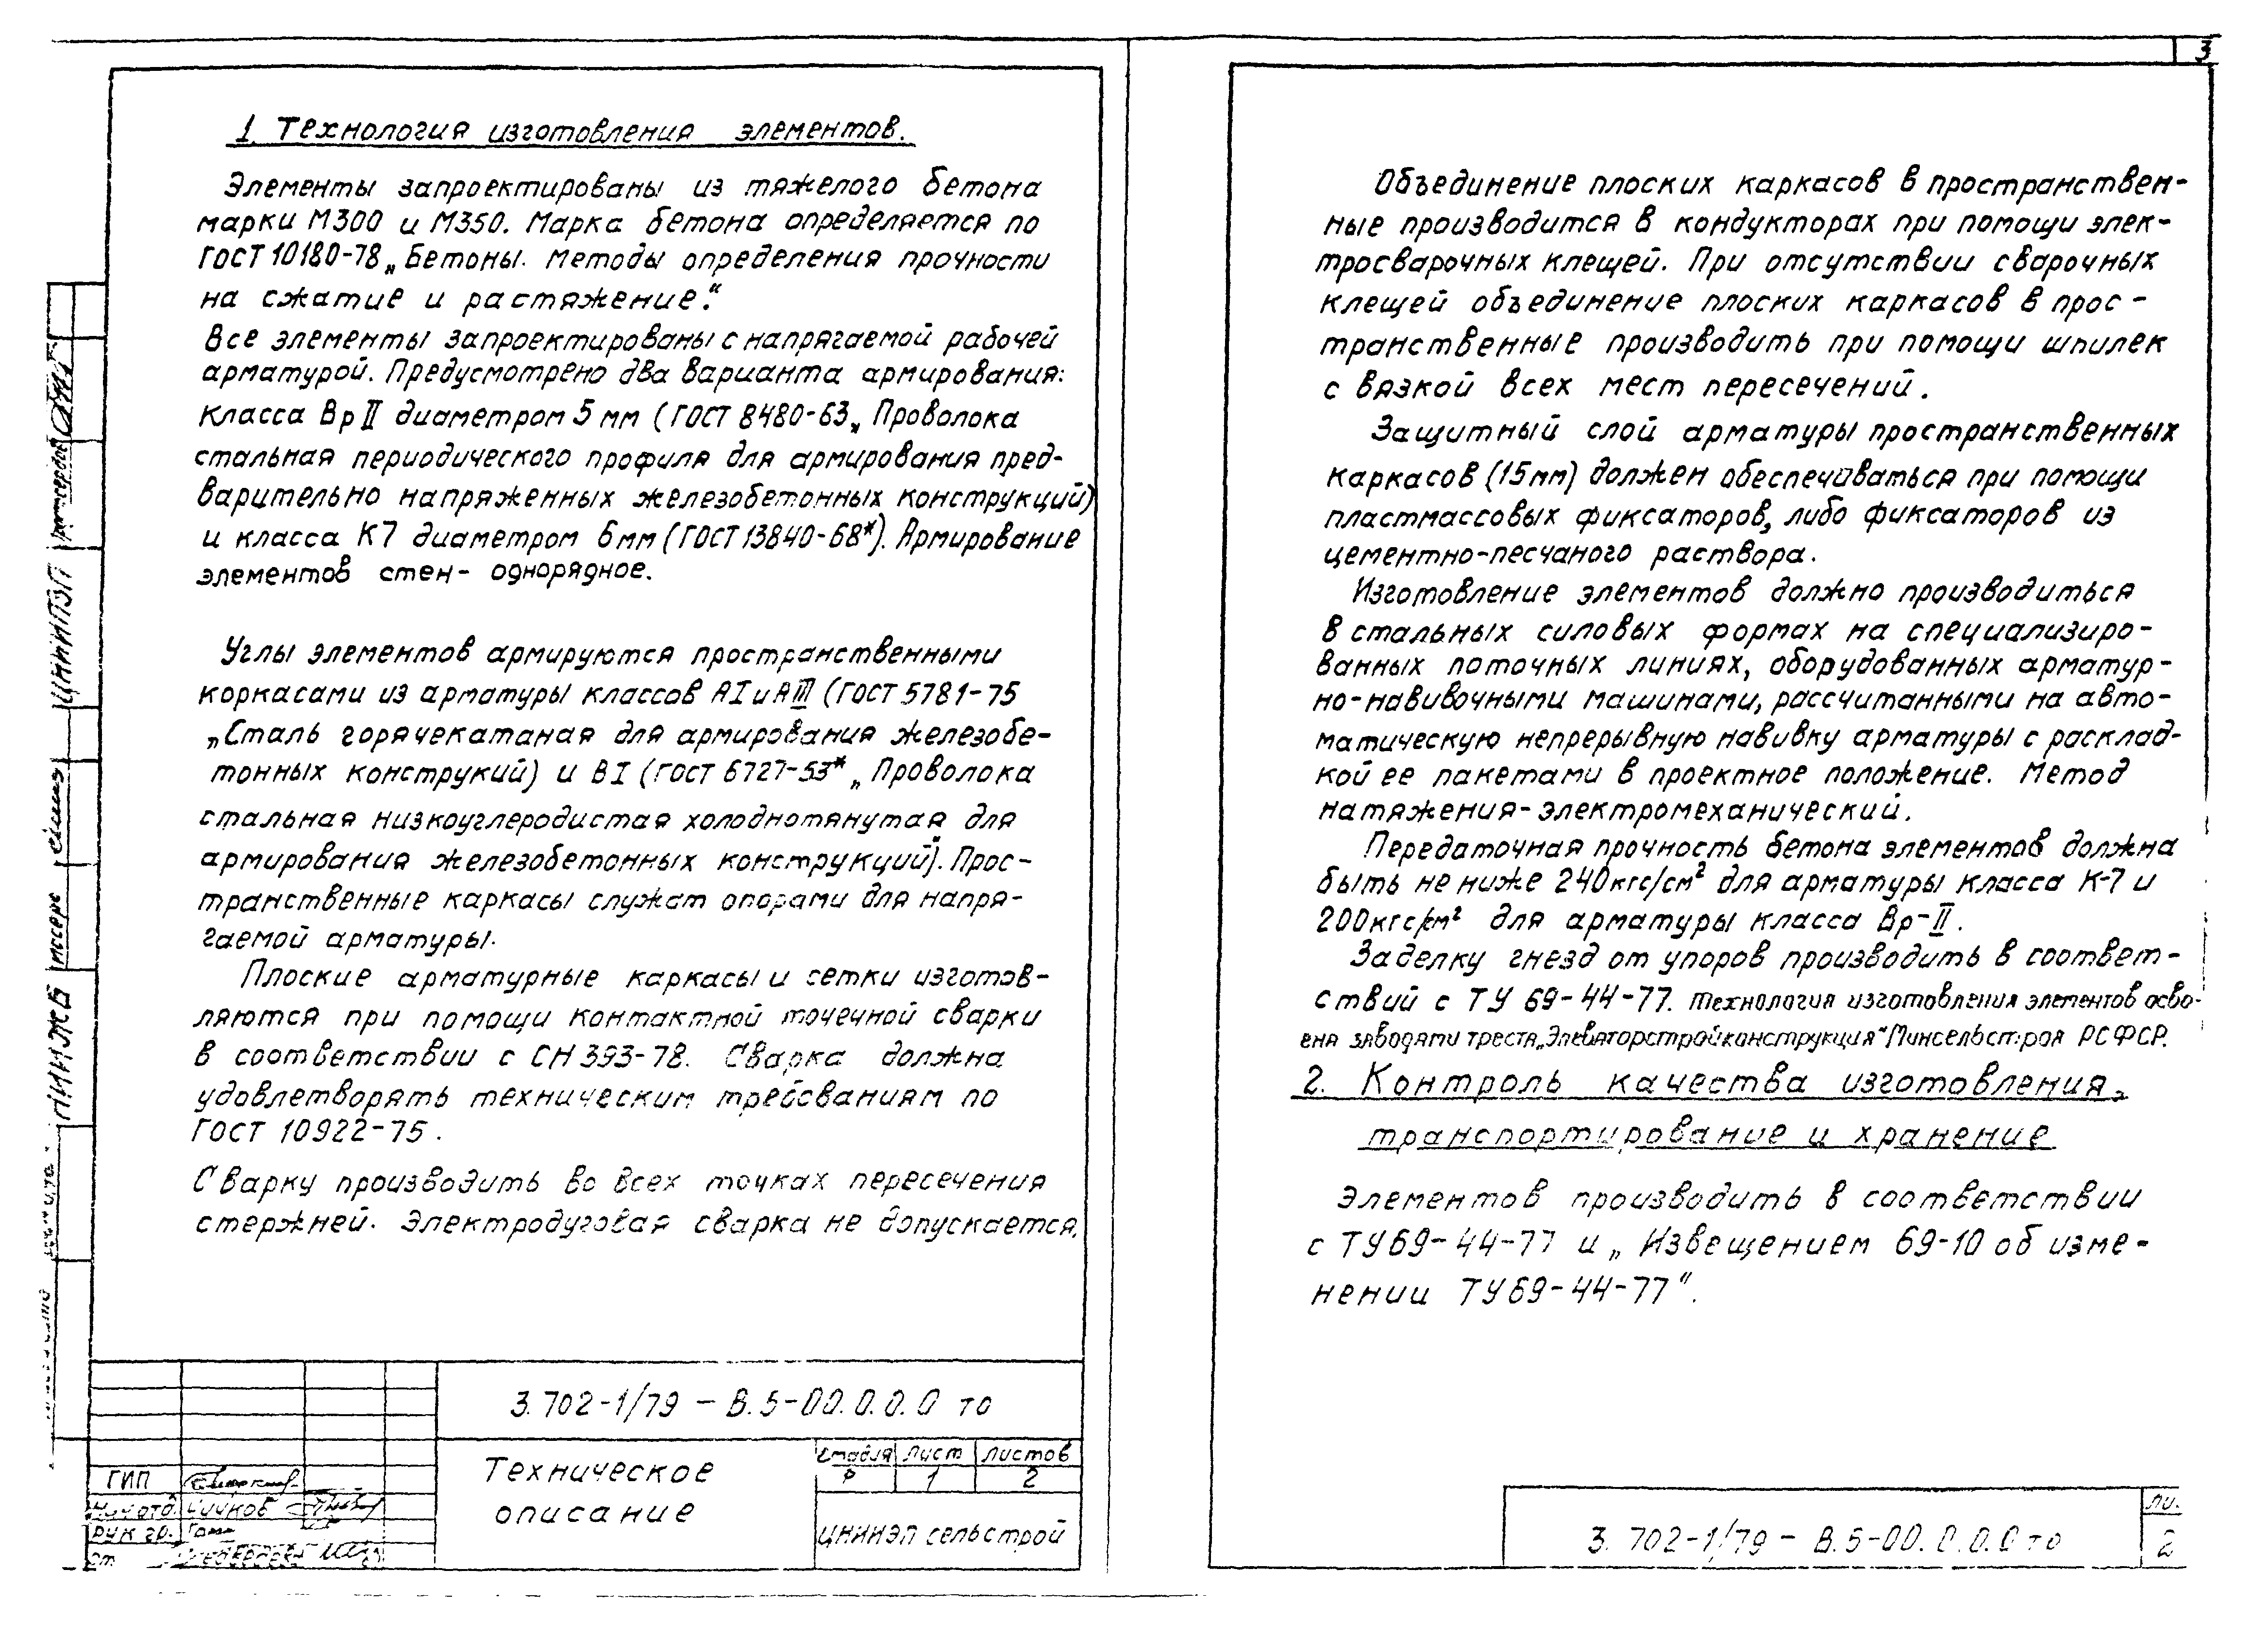 3
1. Технология изготовления элементов.
Элементы запроектированы из тяжелого бетона
марки М300 и М350. Марка бетона определяется по
ГОСТ 10180-78 „Бетоны. Методы определения прочности
на сжатие и растяжение."
Все элементы запроектированы с напрягаемой рабочей
арматурой. Предусмотрено два варианта армирования:
класса Вр II диаметром 5 мм (ГОСТ 8480-63 „Проволока
стальная периодического профиля для армирования пред-
варительно напряженных железобетонных конструкций)
и класса К7 диаметром 6 мм (ГОСТ 13840-68*). Армирование
элементов стен- однорядное.
Углы элементов армируются пространственными
коркасами из арматуры классов АI и АIII (ГОСТ 5781-75
„Сталь горячекатаная для армирования железобе-
тонных конструкий) и ВI (ГОСТ 6727-53* „Проволока
стальная низкоуглеродистая холоднотянутая для
армирования железобетонных конструкций"). Прос-
транственные каркасы служат опорами для напря-
гаемой арматуры.
Плоские арматурные каркасы и сетки изготов-
ляются при помощи контактной точечной сварки
в соответствии с СН 393-78. Сварка должна
удовлетворять техническим требованиям по
ГОСТ 10922-75.
Сварку производить во всех точках пересечения
стержней. Электродуговая сварка не допускается.
3.702-1/79 - В.5-00.0.0.0 то
Техническое
описание
Стадия Лист Листов
Р 1 2
ЦНИИЭПсельстрой
ГИП
Нач.отд. Чичков
Рук.гр.
Объединение плоских каркасов в пространствен-
ные производится в кондукторах при помощи элек-
тросварочных клещей. При отсутствии сварочных
клещей объединение плоских каркасов в прос-
транственные производить при помощи шпилек
с вязкой всех мест пересечений.
Защитный слой арматуры пространственных
каркасов (15мм) должен обеспечиваться при помощи
пластмассовых фиксаторов, либо фиксаторов из
цементно-песчаного раствора.
Изготовление элементов должно производиться
в стальных силовых формах на специализиро-
ванных поточных линиях, оборудованных арматур-
но-навивочными машинами, рассчитанными на авто-
матическую непрерывную навивку арматуры с расклад-
кой ее пакетами в проектное положение. Метод
натяжения-электромеханический.
Передаточная прочность бетона элементов должна
быть не ниже 240 кгс/см² для арматуры класса К-7 и
200 кгс/см² для арматуры класса Вр-II.
Заделку гнезд от упоров производить в соответ-
ствий с ТУ 69-44-77. Технология изготовления элементов осво-
ена заводами треста „Элеваторстройконструкция" Минсельстроя РСФСР.
2. Контроль качества изготовления,
транспортирование и хранение
элементов производить в соответствии
с ТУ69-44-77 и „Извещением 69-10 об изме-
нении ТУ69-44-77".
3.702-1/79 - В.5-00.0.0.0 то
2